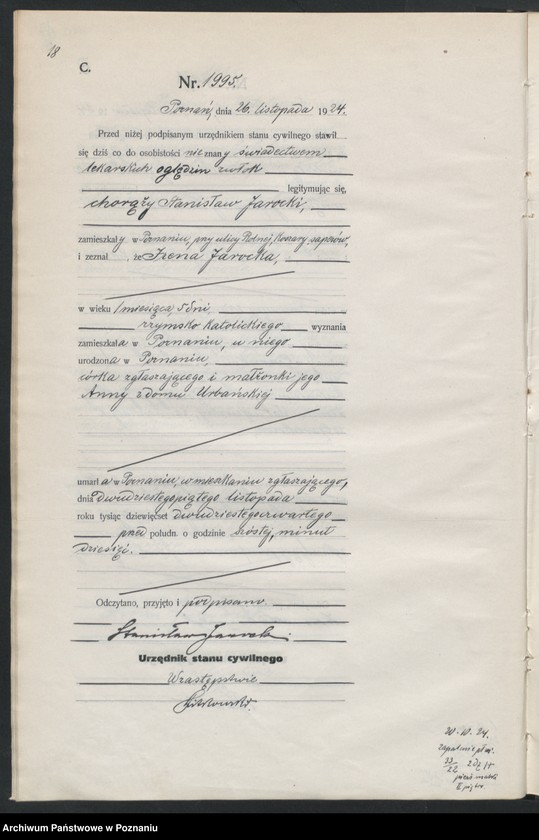 18
C.
Nr. 1995.
Poznań, dnia 26. listopada 1924.
Przed niżej podpisanym urzędnikiem stanu cywilnego stawił
się dziś co do osobistości nieznany świadectwem
lekarskich oględzin zwłok
legitymując się,
chorąży Stanisław Jarocki,
zamieszkały w Poznaniu, przy ulicy Rolnej, Koszary saperów,
i zeznał, że Irena Jarocka,
w wieku 1 miesiąca, 5 dni,
rzymsko katolickiego wyznania
zamieszkała w Poznaniu, u niego
urodzona w Poznaniu,
córka zgłaszającego i małżonki jego
Anny z domu Urbańskiej
umarła w Poznaniu, w mieszkaniu zgłaszającego,
dnia dwudziestego piątego listopada
roku tysiąc dziewięćset dwudziestego czwartego
przed połudn. o godzinie szóstej, minut
dziesięć.
Odczytano, przyjęto i podpisano.
Stanisław Jarocki.
Urzędnik stanu cywilnego
W zastępstwie
24.
zapalenie płuc
33/22
II piętro
Archiwum Państwowe w Poznaniu